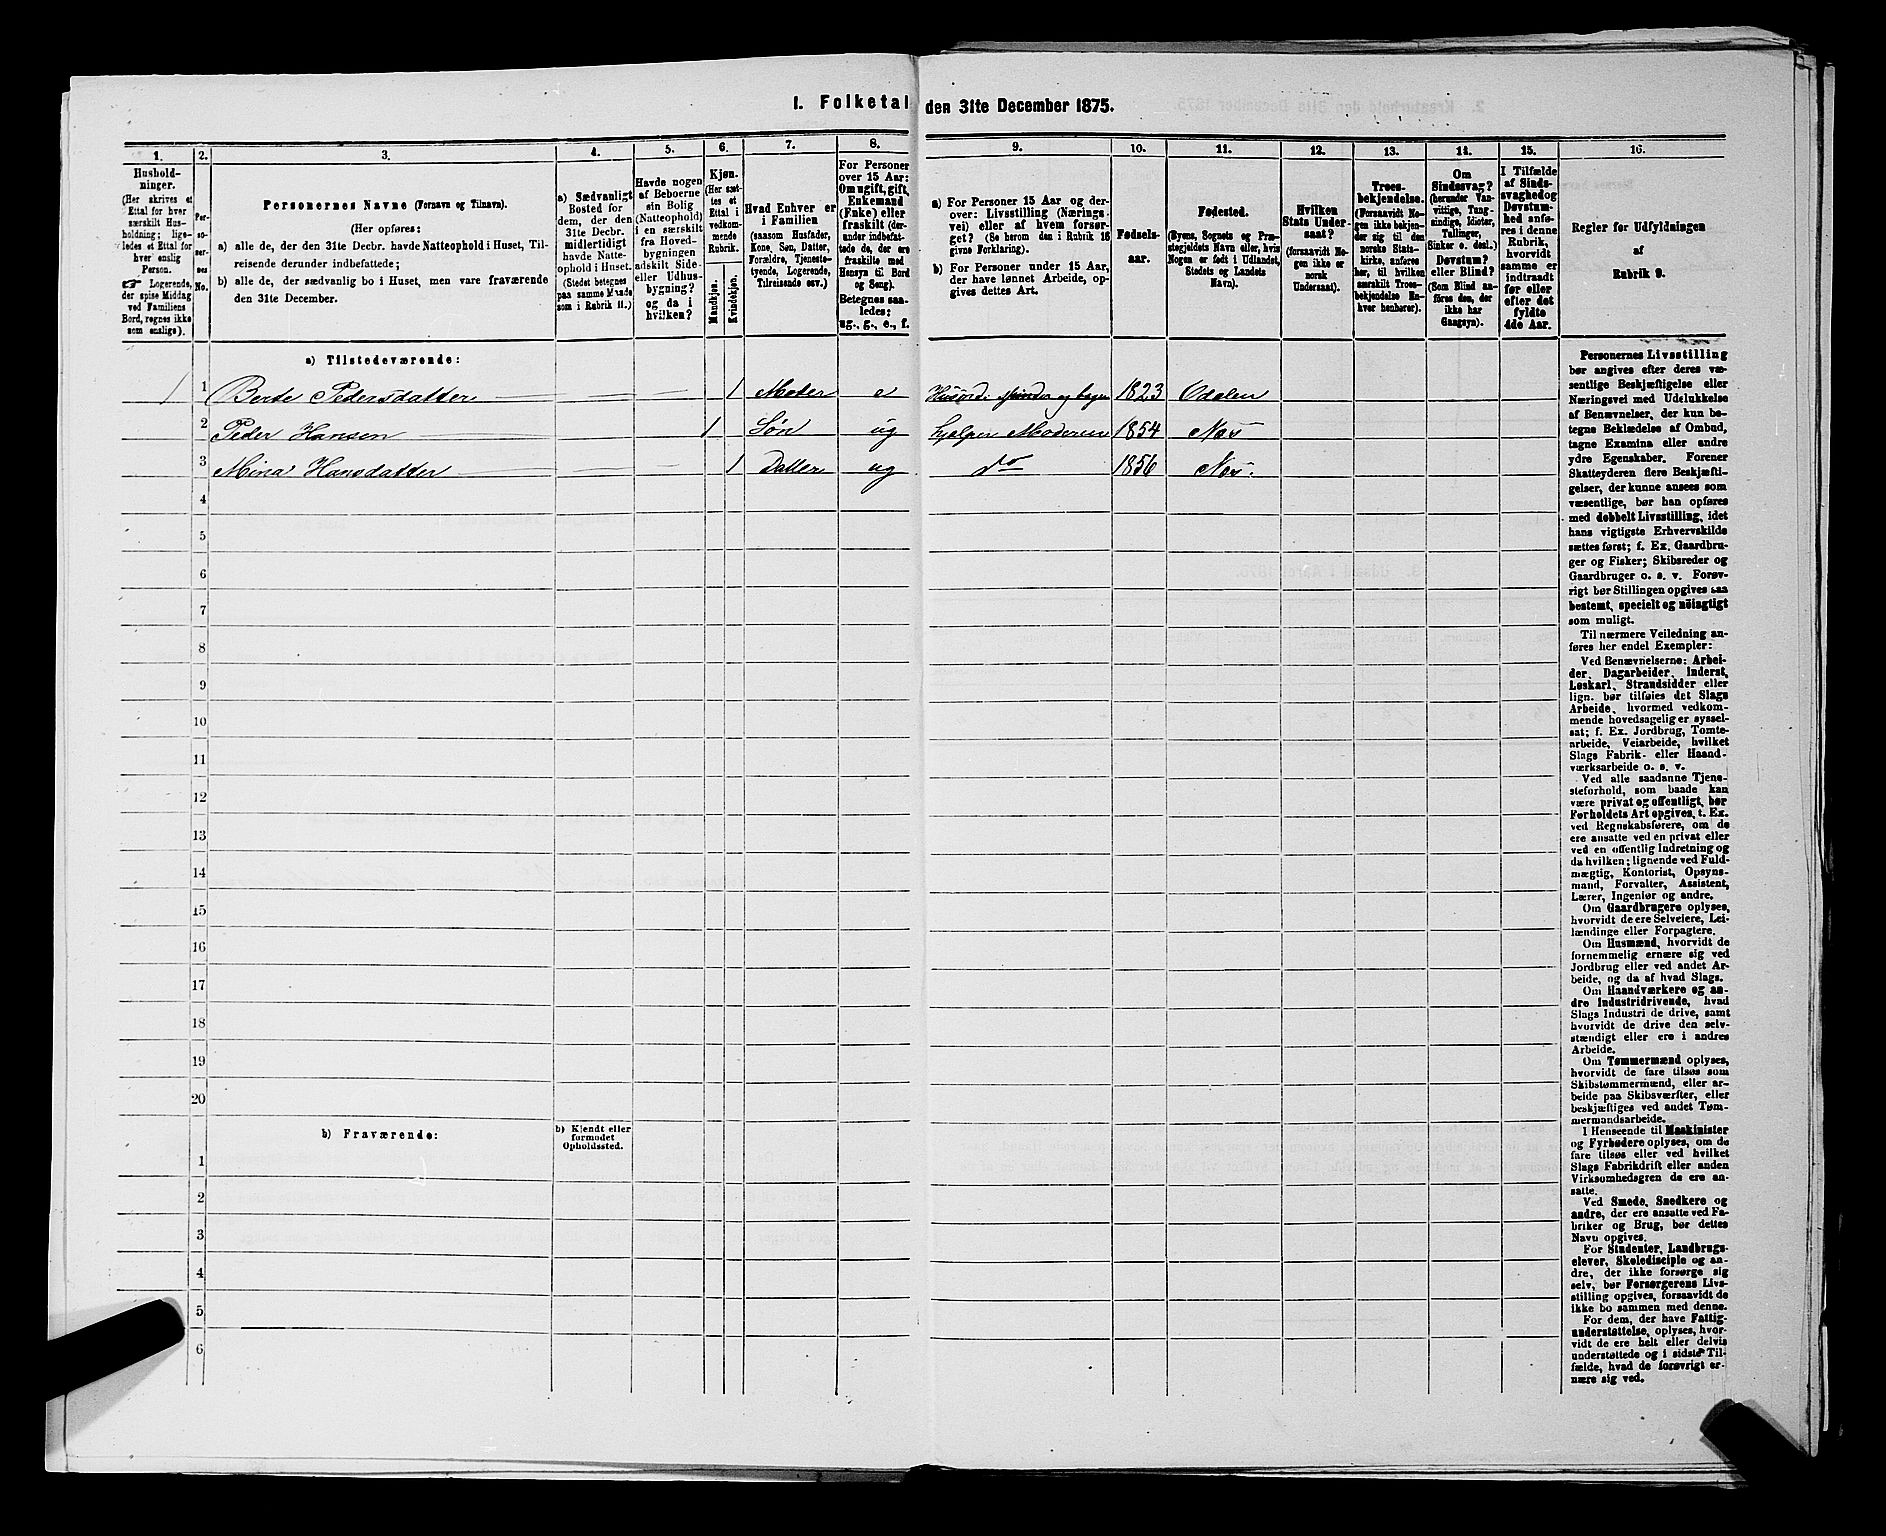 1. Folketal den 31te December 1875.
1. 2. 3. 4. 5. 6. 7. 8. 9. 10. 11. 12. 13. 14. 15. 16.
Hushold-
ninger.
(Her skrives et
Ettal for hver
særskilt Hus-
holdning; lige-
ledes et Ettal for
hver enslig
Person.
☞ Logerende,
der spise Middag
ved Familiens
Bord, regnes ikke
som enslige).
Per-
so-
ner-
nes
No.
Personernes Navne (Fornavn og Tilnavn).
(Her opføres:
a) alle de, der den 31te Decbr. havde Natteophold i Huset, Til-
reisende derunder indbefattede;
b) alle de, der sædvanlig bo i Huset, men vare fraværende
den 31te December.
a) Sædvanligt
Bosted for
dem, der den
31te Decbr.
midlertidigt
havde Natte-
ophold i Huset.
(Stedet betegnes
paa samme Maade
som i Rubrik 11.)
Havde nogen
af Beboerne
sin Bolig
(Natteophold)
i en særskilt
fra Hoved-
bygningen
adskilt Side-
eller Udhus-
bygning?
og da i
hvilken?
Kjøn.
(Her sæt-
tes et
Ettal i
vedkom-
mende
Rubrik.
Mandkjøn.
Kvindekjøn.
Hvad Enhver er
i Familien
(saasom Husfader,
Kone, Søn, Datter,
Forældre, Tjeneste-
tyende, Logerende,
Tilreisende osv.)
For Personer
over 15 Aar:
Om ugift, gift,
Enkemand
(Enke) eller
fraskilt (der-
under indbefat-
tede de, der ere
fraskilte med
Hensyn til Bord
og Seng).
Betegnes saa-
ledes:
ug., g., e., f.
a) For Personer 15 Aar og der-
over: Livsstilling (Nærings-
vei) eller af hvem forsør-
get? (Se herom den i Rubrik 16
givne Forklaring).
b) For Personer under 15 Aar,
der have lønnet Arbeide, op-
gives dettes Art.
Fødsels-
aar.
Fødested.
(Byens, Sognets og Præ-
stegjeldets Navn eller, hvis
Nogen er født i Udlandet,
Stedets og Landets
Navn).
Hvilken
Stats Under-
saat?
(forsaavidt No-
gen ikke er
norsk
Undersaat).
Troes-
bekjendelse.
(Forsaavidt No-
gen ikke bekjen-
der sig til den
norske Stats-
kirke, anføres
her, til hvilken
særskilt Troes-
bekjendelse En-
hver henhører).
Om
Sindssvag?
(herunder Van-
vittige, Tung-
sindige, Idioter,
Tullinger,
Sinker o. desl.)
Døvstum?
eller Blind?
(Som Blind an-
føres den, der
ikke har
Gangsyn).
I Tilfælde
af Sinds-
svaghed og
Døvstum-
hed anfø-
res i denne
Rubrik,
hvorvidt
samme er
indtraadt
før eller
efter det
fyldte
4de Aar.
Regler for Udfyldningen
af
Rubrik 9.
a) Tilstedeværende:
1 1 Berte Pedersdatter — — — 1 Moder e Husjord spinder og bager 1823 Odalen
2 Peder Hansen — — 1 Søn ug hjelper Moderen 1854 Næs
3 Mina Hansdatter — — 1 Datter ug do 1856 Næs.
4
5
6
7
8
9
10
11
12
13
14
15
16
17
18
19
20
b) Fraværende:
b) Kjendt eller
formodet
Opholdssted.
1
2
3
4
5
6
Personernes Livsstilling
bør angives efter deres væ-
sentlige Beskjæftigelse eller
Næringsvei med Udelukkelse
af Benævnelser, der kun be-
tegne Beklædelse af Ombud,
tagne Examina eller andre
ydre Egenskaber. Forener
Skatteyderen flere Beskjæfti-
gelser, der kunne ansees som
væsentlige, bør han opføres
med dobbelt Livsstilling, idet
hans vigtigste Erhvervskilde
sættes først; f. Ex. Gaardbru-
ger og Fisker; Skibsreder og
Gaardbruger o. s. v. Forøv-
rigt bør Stillingen opgives saa
bestemt, specielt og nöiagtigt
som muligt.
Til nærmere Veiledning an-
føres her endel Exempler:
Ved Benævnelserne: Arbei-
der, Dagarbeider, Inderst,
Løskarl, Strandsidder eller
lign. bør tilføies det Slags
Arbeide, hvormed vedkom-
mende hovedsagelig er syssel-
sat; f. Ex. Jordbrug, Tomte-
arbeide, Veiarbeide, hvilket
Slags Fabrik- eller Haand-
værksarbeide o. s. v.
Ved alle saadanne Tjene-
steforhold, som baade kan
være privat og offentligt, bør
Forholdets Art opgives, t. Ex.
ved Regnskabsførere, om de
ere ansatte ved en privat eller
ved en offentlig Indretning og
da hvilken; lignende ved Fuld-
mægtig, Kontorist, Opsyns-
mand, Forvalter, Assistent,
Lærer, Ingeniør og andre.
Om Gaardbrugere oplyses,
hvorvidt de ere Selveiere, Lei-
lændinge eller Forpagtere.
Om Husmænd, hvorvidt de
fornemmelig ernære sig ved
Jordbrug eller ved andet Ar-
beide, og da af hvad Slags.
Om Haandværkere og an-
dre Industridrivende, hvad
Slags Industri de drive, samt
hvorvidt de drive den selv-
stændigt eller ere i andres
Arbeide.
Om Tømmermænd oplyses,
hvorvidt de fare tilsøs som
Skibstømmermænd, eller ar-
beide paa Skibsværfter, eller
beskjæftiges ved andet Tøm-
mermandsarbeide.
I Henseende til Maskinister
og Fyrbødere oplyses, om de
fare tilsøs eller ved hvilket
Slags Fabrikdrift eller anden
Virksomhedsgren de ere an-
satte.
Ved Smede, Snedkere og
andre, der ere ansatte ved Fa-
briker og Brug, bør dettes
Navn opgives.
For Studenter, Landbrugs-
elever, Skoledisciple og an-
dre, der ikke forsørge sig
selv, bør Forsørgerens Livs-
stilling opgives, forsaavidt de
ikke bo sammen med denne.
For dem, der have Fattig-
understøttelse, oplyses, hvor-
vidt de ere helt eller delvis
understøttede og i sidste Til-
fælde, hvad de forøvrigt er-
nære sig ved.